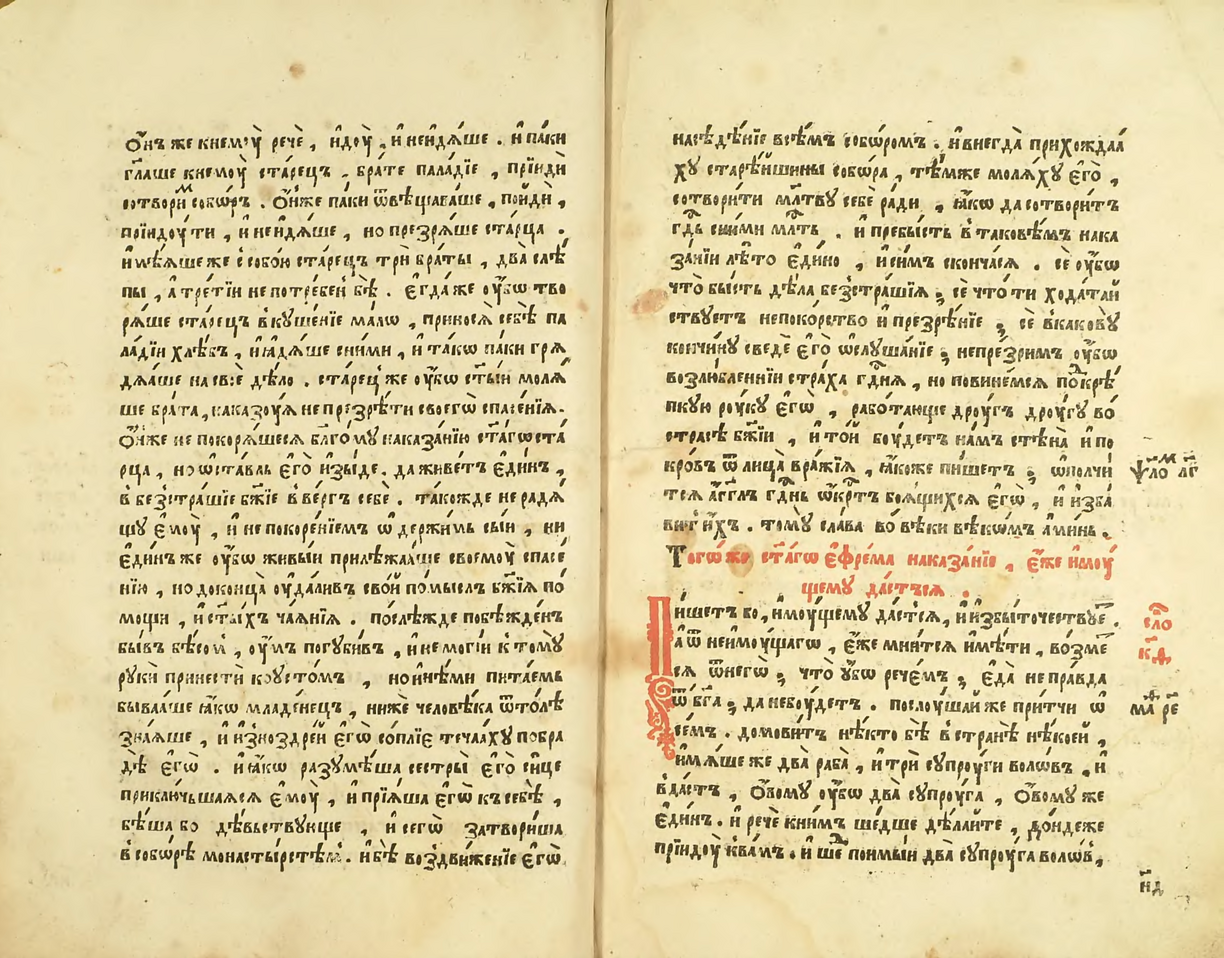 Ѻ҆́нъ же кнемꙋ̀ речѐ , и҆дꙋ̀ , и҆ неидѧ́ше . и҆ па́ки
гл҃аше кнемꙋ̀ ста́рецъ . бра́те пала́дїе , прїидѝ
сотворѝ собѡ́ръ . Ѻ҆́нже паки ѿвѣщава́ше , поидѝ ,
прїидꙋ́ ти , и҆ неидѧ́ше , но презрѧ́ше ста́рца .
и҆мѣѧ́ше же с̾ собо́ю ста́рецъ трѝ бра́ты , два̀ слѣ
пы̀ , а҆ тре́тїи непотре́бен бѣ̀ . є҆гда́ же ᲂу҆́бѡ тво
рѧ́ше ста́рецъ в̾кꙋше́нїе ма́лѡ , приносѧ̀ себѣ̀ па
ла́дїи хлѣ́бъ , и҆ ꙗ҆дѧ́ше сни́ми , и҆ та́кѡ па́ки грѧ
дѧ́аше на своѐ дѣ́ло . ста́рец же ᲂу҆́бѡ ст҃ы́и молѧ́
ше бра́та , наказꙋ́ѧ непрезрѣ́ти своегѡ̀ спасе́нїѧ .
Ѻ҆́нже не покорѧ́шесѧ бл҃го́мꙋ наказа́нїю ст҃а́гѡ ста́
рца , но ѡ҆ста́вль є҆го̀ и҆зы́де . да живе́тъ є҆ди́нъ ,
в̾ безстра́шїе бж҃їе вве́ргъ себѐ . та́кожде не радѧ́
щꙋ є҆мꙋ̀ , и҆ не покоре́нїемъ ѡ҆держи́мь сы́и , ни
є҆ди́нъ же ᲂу҆́бѡ живы́и прилѣжа́аше своемꙋ̀ спасе́
нїю , но доконца̀ ᲂу҆дали́въ сво́и по́мыслъ бж҃їѧ по́
мощи , и҆ ст҃ы́хъ ча́ѧнїѧ . послѣ́жде побѣжде́нъ
бы́въ бѣ́сом , ᲂу҆́мъ погꙋби́въ , и҆ немоги́и к̾ томꙋ̀
рꙋкѝ принестѝ кꙋсто́мъ , но и҆нѣ́ми пита́емь
быва́аше ꙗ҆́кѡ младе́нецъ , ниже человѣ́ка ѿто́лѣ
зна́ѧше , и҆ и҆зноздре́и є҆гѡ̀ сопли́є теча́ахꙋ по бра
дѣ̀ є҆гѡ̀ . и҆ ꙗ҆́кѡ разꙋмѣ́ша сестры̀ є҆го̀ си́це
приключьша́ѧсѧ є҆мꙋ̀ , и҆ прїѧ́ша є҆гѡ̀ къ себѣ̀ ,
бѣ́ша бо дѣ́вьствꙋюще , и҆ сегѡ̀ затвори́ша
в̾ собѡ́рѣ монасты́рстѣм . и҆ бѣ̀ воздвиже́нїе є҆гѡ̀
насѣдѣ́нїе всѣ́мъ собѡ́ромъ . и҆ внегда̀ прихожда́а
хꙋ старѣ́ишины собѡ́ра , тѣ́мже молѧ́хꙋ є҆го̀ ,
сотвори́ти мл҃твꙋ себѐ ра́ди , ꙗ҆́кѡ да сотвори́тъ
гдь сни́ми мл҃ть . и҆ пребы́сть в̾ такове́мъ нака
за́нїи лѣ́то є҆ди́но , и҆ си́мъ сконча́сѧ . сѐ ᲂу҆́бѡ
что̀ бы́сть дѣ́ла безстра́шїѧ ; сѐ что́ ти хода́таи
ствꙋетъ непоко́рство и҆ презрѣ́нїе ; сѐ в̾каковꙋ̀
кончи́нꙋ сведѐ є҆го̀ ѡ҆слꙋша́нїе ; непре́зримъ ᲂу҆́бѡ
возлю́бленнїи стра́ха гд҃нѧ , но пови́немсѧ под̾ крѣ́
пкꙋю рꙋ́кꙋ є҆гѡ̀ , рабо́тающе дрꙋ́гъ дрꙋ́гꙋ во
стра́сѣ бж҃їи , и҆ то́и бꙋ́детъ на́мъ стѣна̀ и҆ по
кро́въ ѿ лица̀ вра́жїѧ , ꙗ҆́коже пи́шетъ ; ѡ҆полчи́
тсѧ а҆́гг҃лъ гд҃нь ѡ҆́крт҃ъ боѧ́щихсѧ є҆гѡ̀ , и҆ и҆зба́
вит и҆́хъ . томꙋ̀ сла́ва во вѣ́ки вѣкѡ́мъ а҆ми́нь .
ѱало́м л҃г
Тогѡ́же ст҃а́гѡ є҆фре́ма наказа́нїе , є҆́же и҆мꙋ́
щемꙋ да́стьсѧ .
Пи́шетъ бо , и҆мꙋ́щемꙋ да́стсѧ , и҆ и҆збыто́чествꙋе .
а҆ ѿ неимꙋ́щагѡ , є҆́же мни́тсѧ и҆мѣ́ти , во́зме
сѧ ѿнегѡ̀ ; что̀ ᲂу҆́бѡ рече́мъ ; є҆да̀ не пра́вда
ѿ бг҃а ; да небꙋ́детъ . послꙋ́шаи же при́тчи ѡ҆
се́мъ . домови́тъ нѣ́кто бѣ̀ в̾ странѣ̀ нѣ́коеи ,
и҆мѧ́ше же два̀ раба̀ , и҆ трѝ сꙋпрꙋ́ги воло́въ , и҆
вда́стъ , Ѻ҆́вомꙋ ᲂу҆́бѡ два̀ сꙋпрꙋ́га , Ѻ҆́вомꙋ же
є҆ди́нъ . и҆ речѐ кни́мъ ше́дше дѣ́лаите , до́ндеже
прїидꙋ̀ к̾ва́мъ . и҆ ше́д пои́мыи два̀ сꙋпрꙋ́га воло́въ ,
сло
к҃д
ма́ѳ ре
н҃д